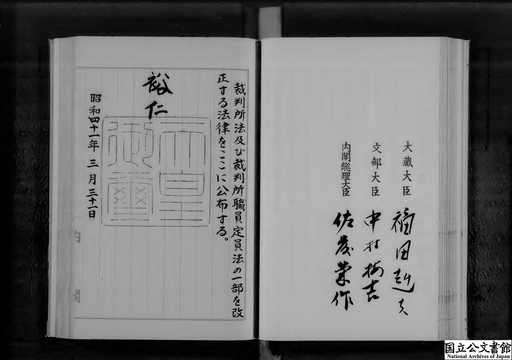 大蔵大臣 福田赳夫
文部大臣 中村梅吉
内閣総理大臣 佐藤榮作
裁判所法及び裁判所職員定員法の一部を改
正する法律をここに公布する。
裕仁
天皇
御璽
昭和四十一年三月三十一日
国立公文書館
National Archives of Japan